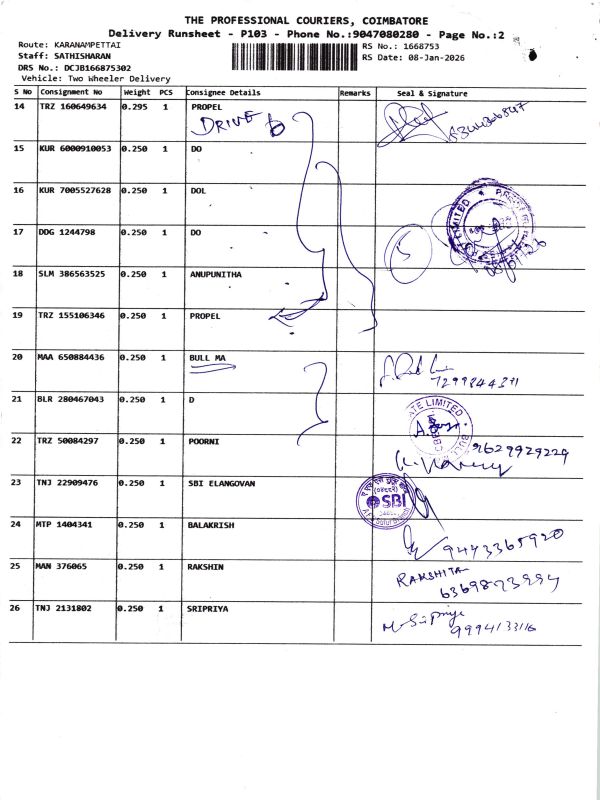 THE PROFESSIONAL COURIERS, COIMBATORE
Delivery Runsheet - P103 - Phone No.:9047080280 - Page No.:2
Route: KARANAMPETTAI
RS No.: 1668753
Staff: SATHISHARAN
RS Date: 08-Jan-2026
DRS No.: DCJB166875302
Vehicle: Two Wheeler Delivery
S No Consignment No Weight PCS Consignee Details Remarks Seal & Signature
14 TRZ 160649634 0.295 1 PROPEL
DRIVE
15 KUR 6000910053 0.250 1 DO
16 KUR 7005527628 0.250 1 DOL
17 DDG 1244798 0.250 1 DO
LIMITED
5
18 SLM 386563525 0.250 1 ANUPUNITHA
19 TRZ 155106346 0.250 1 PROPEL
20 MAA 650884436 0.250 1 BULL MA
21 BLR 280467043 0.250 1 D
LIMITED
9629929229
22 TRZ 50084297 0.250 1 POORNI
23 TNJ 22909476 0.250 1 SBI ELANGOVAN
SBI
24 MTP 1404341 0.250 1 BALAKRISH
9443365920
25 MAN 376065 0.250 1 RAKSHIN
RAKSHITA
26 TNJ 2131802 0.250 1 SRIPRIYA
M. Sripriya
9994133116